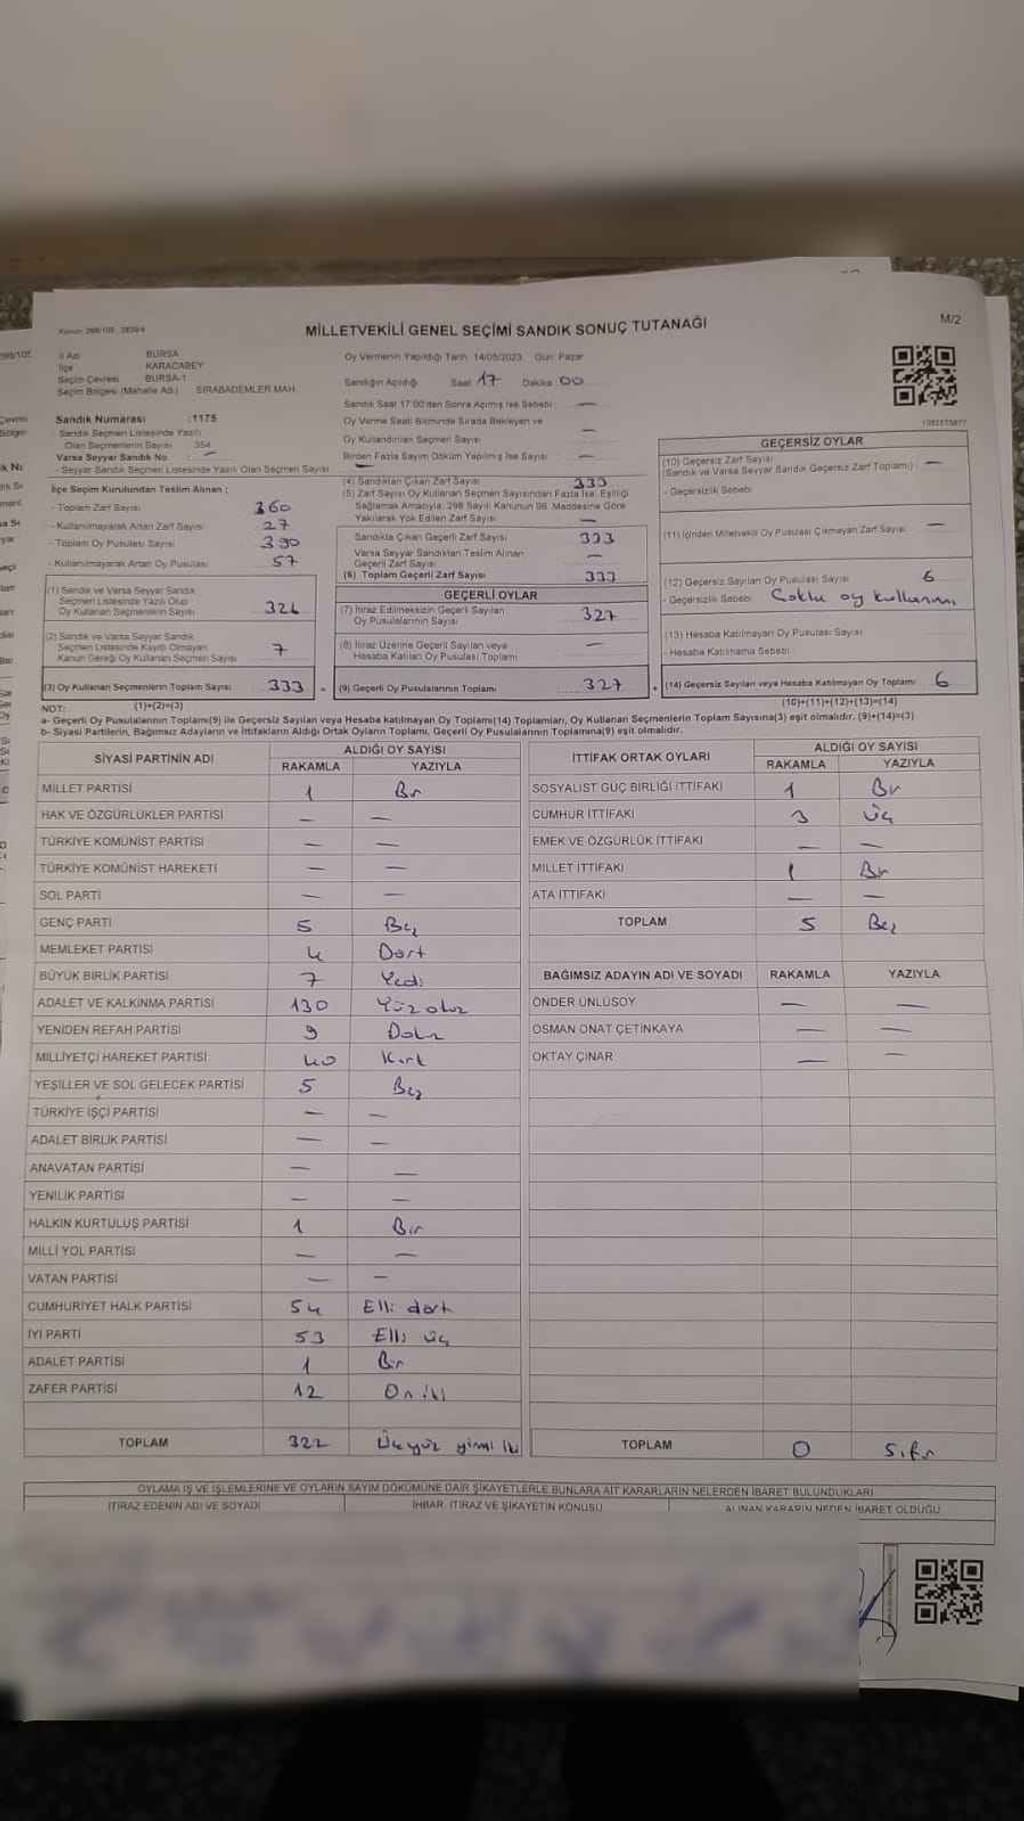 MİLLETVEKİLİ GENEL SEÇİMİ SANDIK SONUÇ TUTANAĞI
M/2
İl Adı BURSA
İlçe KARACABEY
Seçim Çevresi BURSA-1
Seçim Bölgesi (Mahalle Ad.) SIRABADEMLER MAH.
Sandık Numarası :1175
Sandık Seçmen Listesinde Yazılı
Olan Seçmenlerin Sayısı 354
Varsa Seyyar Sandık No : —
- Seyyar Sandık Seçmen Listesinde Yazılı Olan Seçmen Sayısı
Oy Vermenin Yapıldığı Tarih 14/05/2023 Gün: Pazar
Sandığın Açıldığı Saat 17 Dakika 00
Sandık Saat 17:00'den Sonra Açılmış İse Sebebi: —
Oy Verme Saati Bitiminde Sırada Bekleyen ve
Oy Kullandırılan Seçmen Sayısı —
Birden Fazla Sayım Döküm Yapılmış İse Sayısı —
İlçe Seçim Kurulundan Teslim Alınan :
- Toplam Zarf Sayısı 360
- Kullanılmayarak Artan Zarf Sayısı 27
- Toplam Oy Pusulası Sayısı 390
- Kullanılmayarak Artan Oy Pusulası 57
(1) Sandık ve Varsa Seyyar Sandık
Seçmen Listesinde Yazılı Olup
Oy Kullanan Seçmenlerin Sayısı 326
(2) Sandık ve Varsa Seyyar Sandık
Seçmen Listesinde Kayıtlı Olmayan
Kanun Gereği Oy Kullanan Seçmen Sayısı 7
(3) Oy Kullanan Seçmenlerin Toplam Sayısı 333
(1)+(2)=(3)
(4) Sandıktan Çıkan Zarf Sayısı 333
(5) Zarf Sayısı Oy Kullanan Seçmen Sayısından Fazla İse, Eşitliği
Sağlamak Amacıyla; 298 Sayılı Kanunun 98. Maddesine Göre
Yakılarak Yok Edilen Zarf Sayısı —
Sandıkta Çıkan Geçerli Zarf Sayısı 333
Varsa Seyyar Sandıktan Teslim Alınan
Geçerli Zarf Sayısı —
(6) Toplam Geçerli Zarf Sayısı 333
GEÇERLİ OYLAR
(7) İtiraz Edilmeksizin Geçerli Sayılan
Oy Pusulalarının Sayısı 327
(8) İtiraz Üzerine Geçerli Sayılan veya
Hesaba Katılan Oy Pusulası Toplamı —
(9) Geçerli Oy Pusulalarının Toplamı 327
GEÇERSİZ OYLAR
(10) Geçersiz Zarf Sayısı
(Sandık ve Varsa Seyyar Sandık Geçersiz Zarf Toplamı) —
- Geçersizlik Sebebi
(11) İçinden Milletvekili Oy Pusulası Çıkmayan Zarf Sayısı —
(12) Geçersiz Sayılan Oy Pusulası Sayısı 6
- Geçersizlik Sebebi Çoklu oy kullanımı
(13) Hesaba Katılmayan Oy Pusulası Sayısı
- Hesaba Katılmama Sebebi
(14) Geçersiz Sayılan veya Hesaba Katılmayan Oy Toplamı 6
(10)+(11)+(12)+(13)=(14)
NOT:
a- Geçerli Oy Pusulalarının Toplamı(9) ile Geçersiz Sayılan veya Hesaba katılmayan Oy Toplamı(14) Toplamları, Oy Kullanan Seçmenlerin Toplam Sayısına(3) eşit olmalıdır. (9)+(14)=(3)
b- Siyasi Partilerin, Bağımsız Adayların ve İttifakların Aldığı Ortak Oyların Toplamı, Geçerli Oy Pusulalarının Toplamına(9) eşit olmalıdır.
SİYASİ PARTİNİN ADI ALDIĞI OY SAYISI
RAKAMLA YAZIYLA
MİLLET PARTİSİ 1 Bir
HAK VE ÖZGÜRLÜKLER PARTİSİ — —
TÜRKİYE KOMÜNİST PARTİSİ — —
TÜRKİYE KOMÜNİST HAREKETİ — —
SOL PARTİ — —
GENÇ PARTİ 5 Beş
MEMLEKET PARTİSİ 4 Dört
BÜYÜK BİRLİK PARTİSİ 7 Yedi
ADALET VE KALKINMA PARTİSİ 130 Yüz otuz
YENİDEN REFAH PARTİSİ 9 Dokuz
MİLLİYETÇİ HAREKET PARTİSİ 40 Kırk
YEŞİLLER VE SOL GELECEK PARTİSİ 5 Beş
TÜRKİYE İŞÇİ PARTİSİ — —
ADALET BİRLİK PARTİSİ — —
ANAVATAN PARTİSİ — —
YENİLİK PARTİSİ — —
HALKIN KURTULUŞ PARTİSİ 1 Bir
MİLLİ YOL PARTİSİ — —
VATAN PARTİSİ — —
CUMHURİYET HALK PARTİSİ 54 Elli dört
İYİ PARTİ 53 Elli üç
ADALET PARTİSİ 1 Bir
ZAFER PARTİSİ 12 On iki
TOPLAM 322 Üçyüz yirmi iki
İTTİFAK ORTAK OYLARI ALDIĞI OY SAYISI
RAKAMLA YAZIYLA
SOSYALİST GÜÇ BİRLİĞİ İTTİFAKI 1 Bir
CUMHUR İTTİFAKI 3 Üç
EMEK VE ÖZGÜRLÜK İTTİFAKI — —
MİLLET İTTİFAKI 1 Bir
ATA İTTİFAKI — —
TOPLAM 5 Beş
BAĞIMSIZ ADAYIN ADI VE SOYADI RAKAMLA YAZIYLA
ÖNDER ÜNLÜSOY — —
OSMAN ONAT ÇETİNKAYA — —
OKTAY ÇINAR — —
TOPLAM 0 Sıfır
OYLAMA İŞ VE İŞLEMLERİNE VE OYLARIN SAYIM DÖKÜMÜNE DAİR ŞİKAYETLERLE BUNLARA AİT KARARLARIN NELERDEN İBARET BULUNDUKLARI
İTİRAZ EDENİN ADI VE SOYADI İHBAR, İTİRAZ VE ŞİKAYETİN KONUSU ALINAN KARARIN NEDEN İBARET OLDUĞU